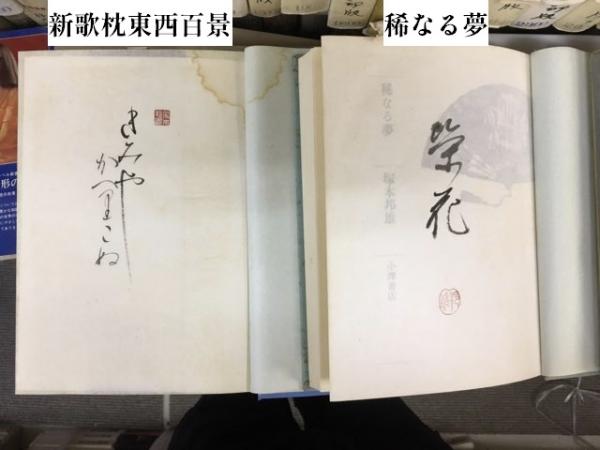 新歌枕東西百景
稀なる夢
きみや
かへりこぬ
稀なる夢
塚本邦雄
小澤書店
栄花